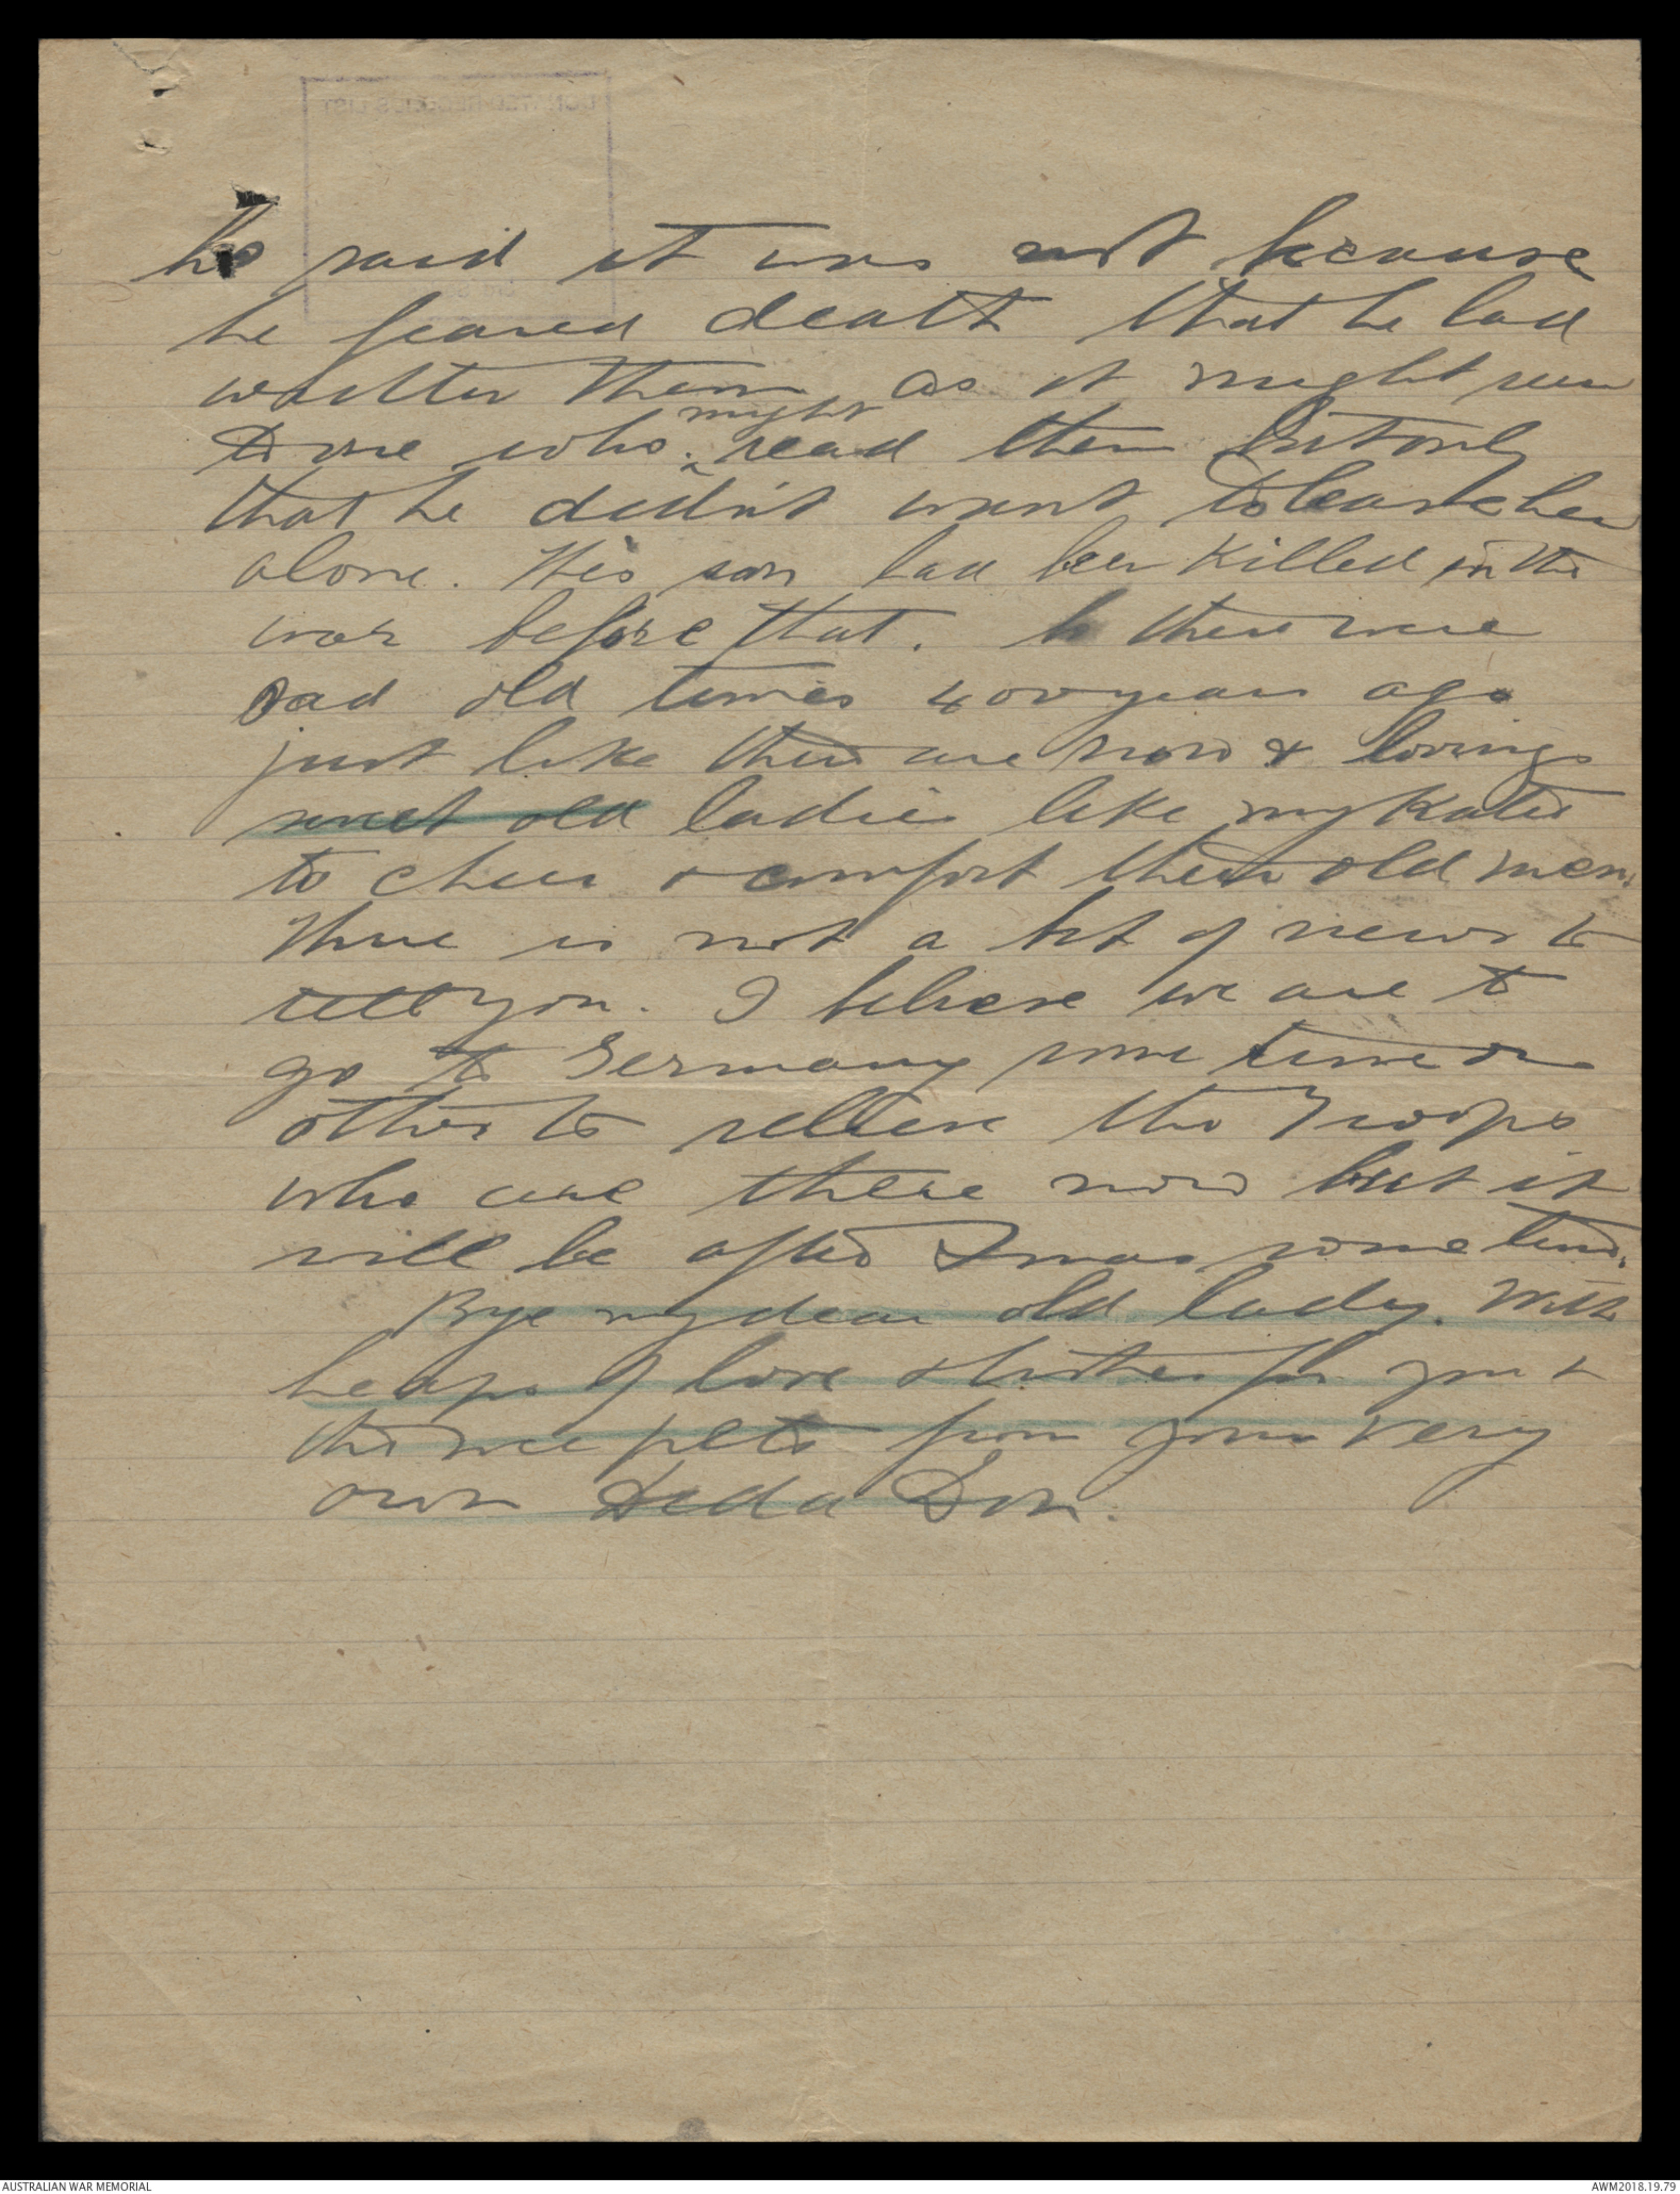 he said it was not because
he feared death that he had
written them as it might seem
to one who might read them but only
that he didn't want to leave her
alone. His son had been killed in the
war before that. So there were
sad old times 400 years ago
just like there are now & loving
sweet old ladies like my Katie
to cheer & comfort their old men.
There is not a bit of news to
tell you. I believe we are to
go to Germany some time or
other to relieve the Troops
who are there now but it
will be after Xmas some time.
Bye my dear old lady. With
heaps of love & kisses for you &
the wee pets from your very
own Dedda Don.
AUSTRALIAN WAR MEMORIAL
AWM2018.19.79